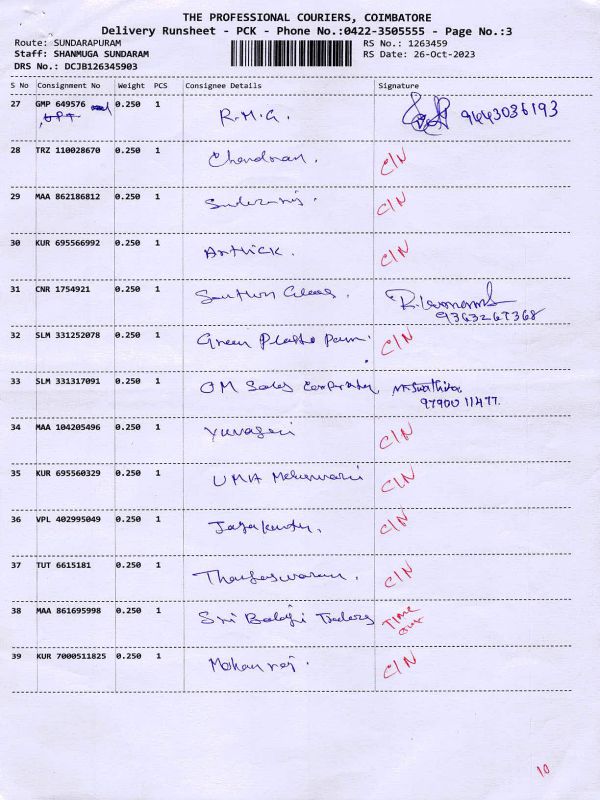 THE PROFESSIONAL COURIERS, COIMBATORE
Delivery Runsheet - PCK - Phone No.:0422-3505555 - Page No.:3
Route: SUNDARAPURAM RS No.: 1263459
Staff: SHANMUGA SUNDARAM RS Date: 26-Oct-2023
DRS No.: DCJB126345903
S No Consignment No Weight PCS Consignee Details Signature
27 GMP 649576 0.250 1 R.M.G. 9443036193
28 TRZ 110028670 0.250 1 Chandran. C/N
29 MAA 862186812 0.250 1 C/N
30 KUR 695566992 0.250 1 Arthick. C/N
31 CNR 1754921 0.250 1 Southern
9363267368
32 SLM 331252078 0.250 1 Green C/N
33 SLM 331317091 0.250 1 OM Sales Corporation
97900 11477.
34 MAA 104205496 0.250 1 C/N
35 KUR 695560329 0.250 1 UMA C/N
36 VPL 402995049 0.250 1 C/N
37 TUT 6615181 0.250 1 C/N
38 MAA 861695998 0.250 1 Sri Balaji Traders TIME
out
39 KUR 7000511825 0.250 1 Mohanraj. C/N
10